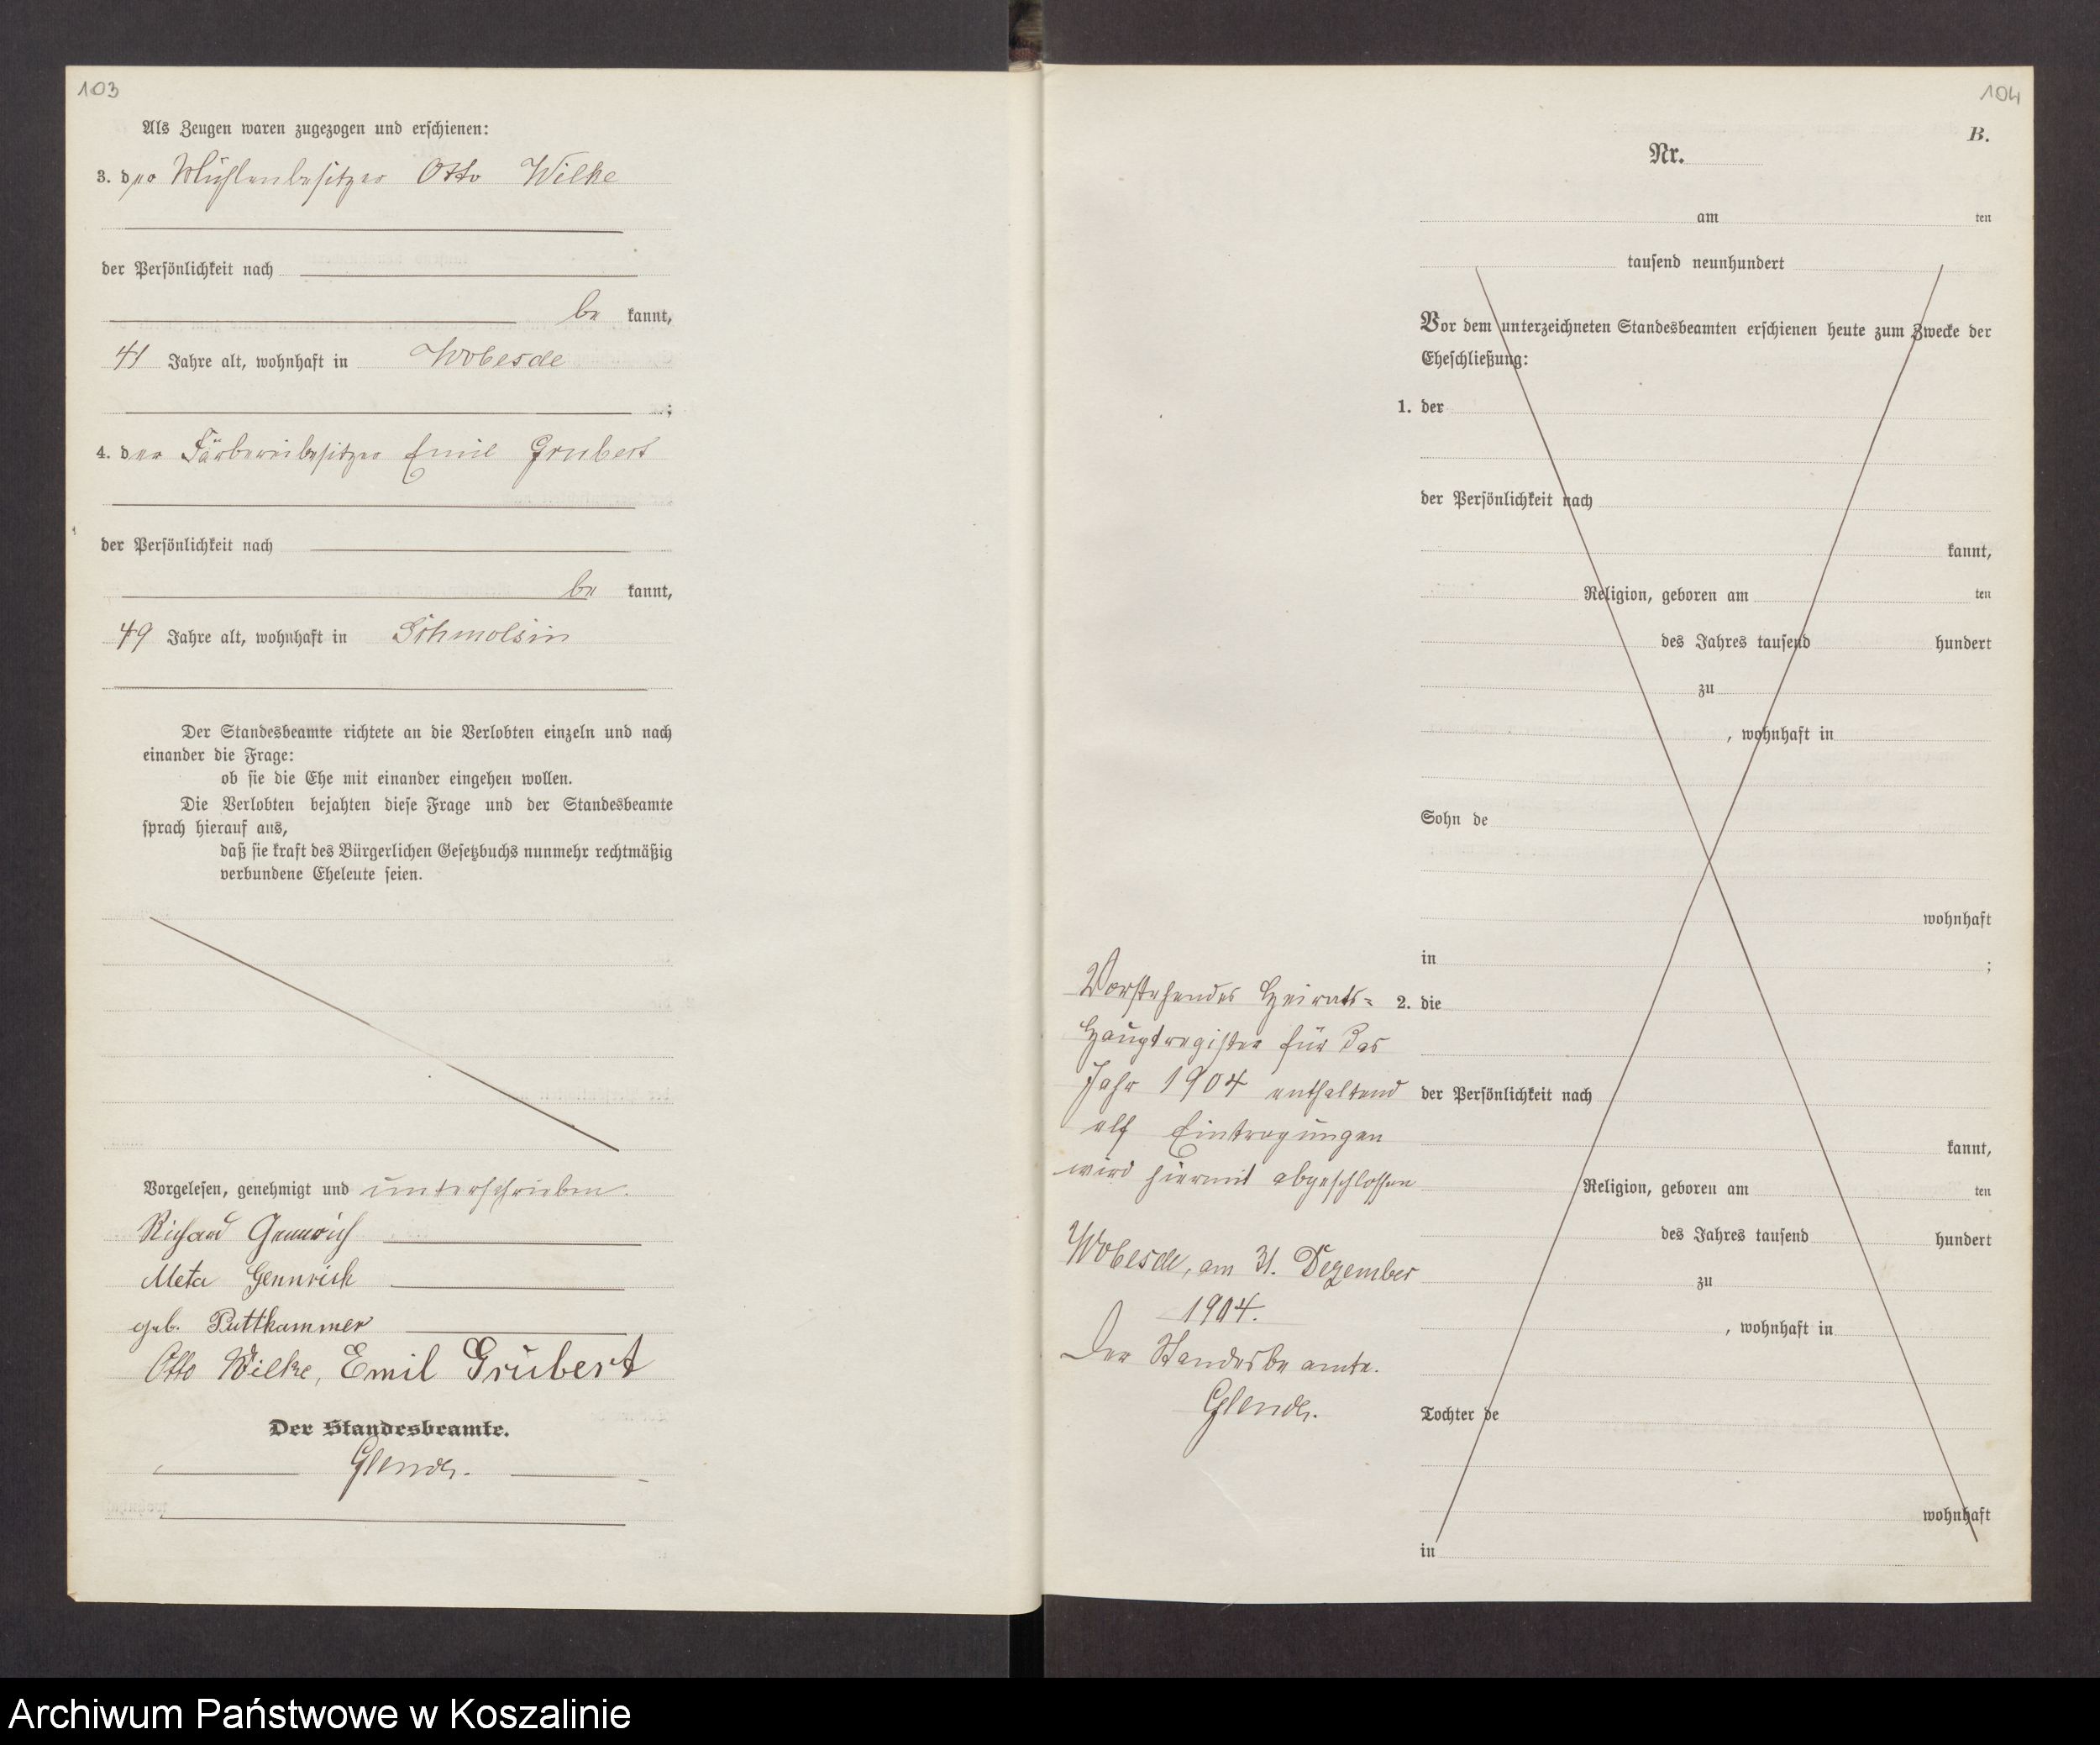 103
Als Zeugen waren zugezogen und erschienen:
3. der Mühlenbesitzer Otto Wilke
der Persönlichkeit nach
be kannt,
41 Jahre alt, wohnhaft in Wobesde
;
4. der Färbereibesitzer Emil Grubert
der Persönlichkeit nach
be kannt,
49 Jahre alt, wohnhaft in Schmolsin
Der Standesbeamte richtete an die Verlobten einzeln und nach
einander die Frage:
ob sie die Ehe mit einander eingehen wollen.
Die Verlobten bejahten diese Frage und der Standesbeamte
sprach hierauf aus,
daß sie kraft des Bürgerlichen Gesetzbuchs nunmehr rechtmäßig
verbundene Eheleute seien.
Vorgelesen, genehmigt und unterschrieben.
Richard Gennrich
Meta Gennrich
geb. Puttkammer
Otto Wilke, Emil Grubert
Der Standesbeamte.
104
B.
Nr.
am ten
tausend neunhundert
Vor dem unterzeichneten Standesbeamten erschienen heute zum Zwecke der
Eheschließung:
1. der
der Persönlichkeit nach
kannt,
Religion, geboren am ten
des Jahres tausend hundert
zu
, wohnhaft in
Sohn de
wohnhaft
in ;
2. die
der Persönlichkeit nach
kannt,
Religion, geboren am ten
des Jahres tausend hundert
zu
, wohnhaft in
Tochter de
wohnhaft
in
Vorstehendes Heirats-
Hauptregister für das
Jahr 1904 enthaltend
elf Eintragungen
wird hiermit abgeschlossen
Wobesde, am 31. Dezember
1904.
Der Standesbeamte.
Archiwum Państwowe w Koszalinie